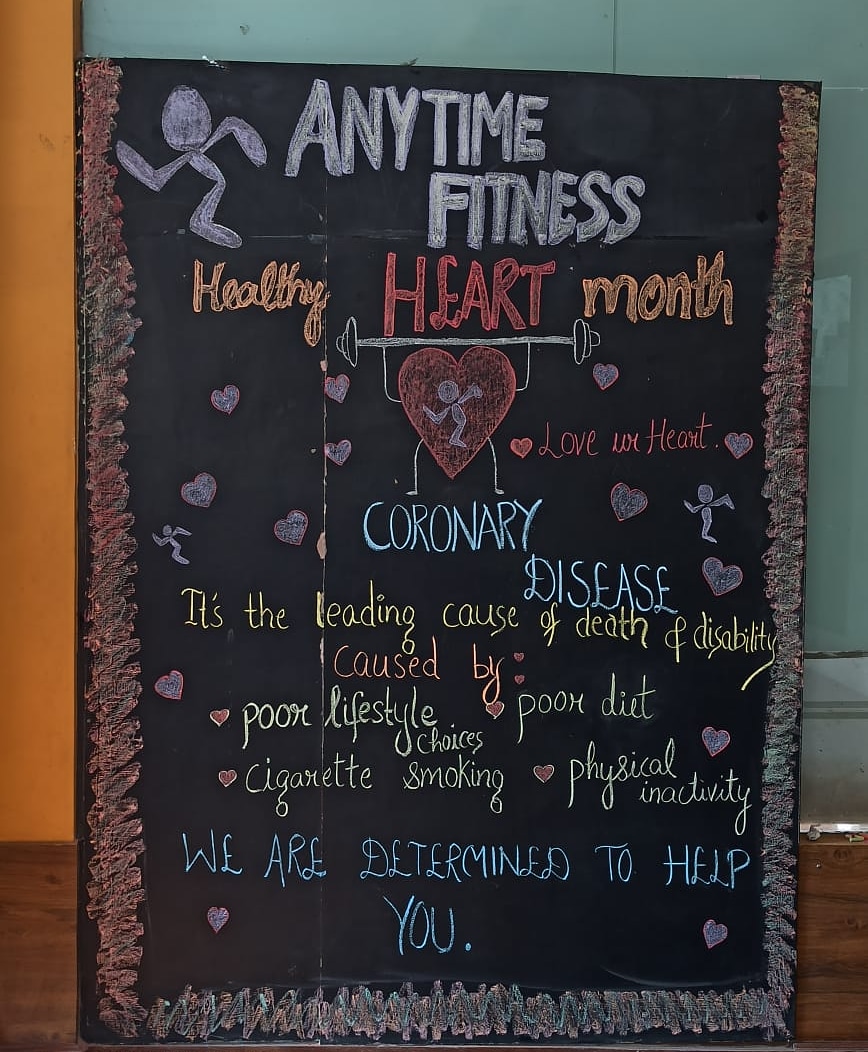 ANYTIME
FITNESS
Healthy HEART month
Love ur Heart.
CORONARY
DISEASE
It's the leading cause of death & disability
caused by:
poor lifestyle choices
poor diet
cigarette smoking
physical inactivity
WE ARE DETERMINED TO HELP
YOU.